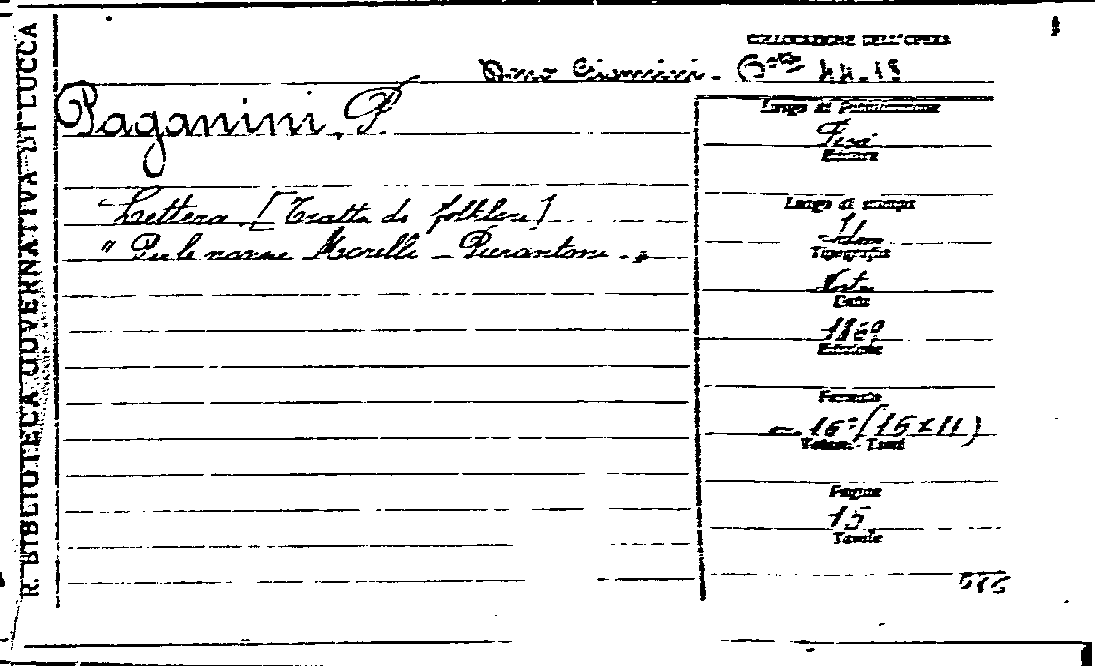 R. BIBLIOTECA GOVERNATIVA DI LUCCA
COLLOCAZIONE DELL'OPERA
44.15
Paganini, P.
Lettera [Tratta di folklore]
" Per le nozze Morelli - Pierantoni "
Luogo di Pubblicazione
Pisa
Editore
Luogo di stampa
Idem
Tipografia
Data
Edizione
Formato
- 16° (15 x 11)
Volumi - Tomi
Pagine
15
Tavole